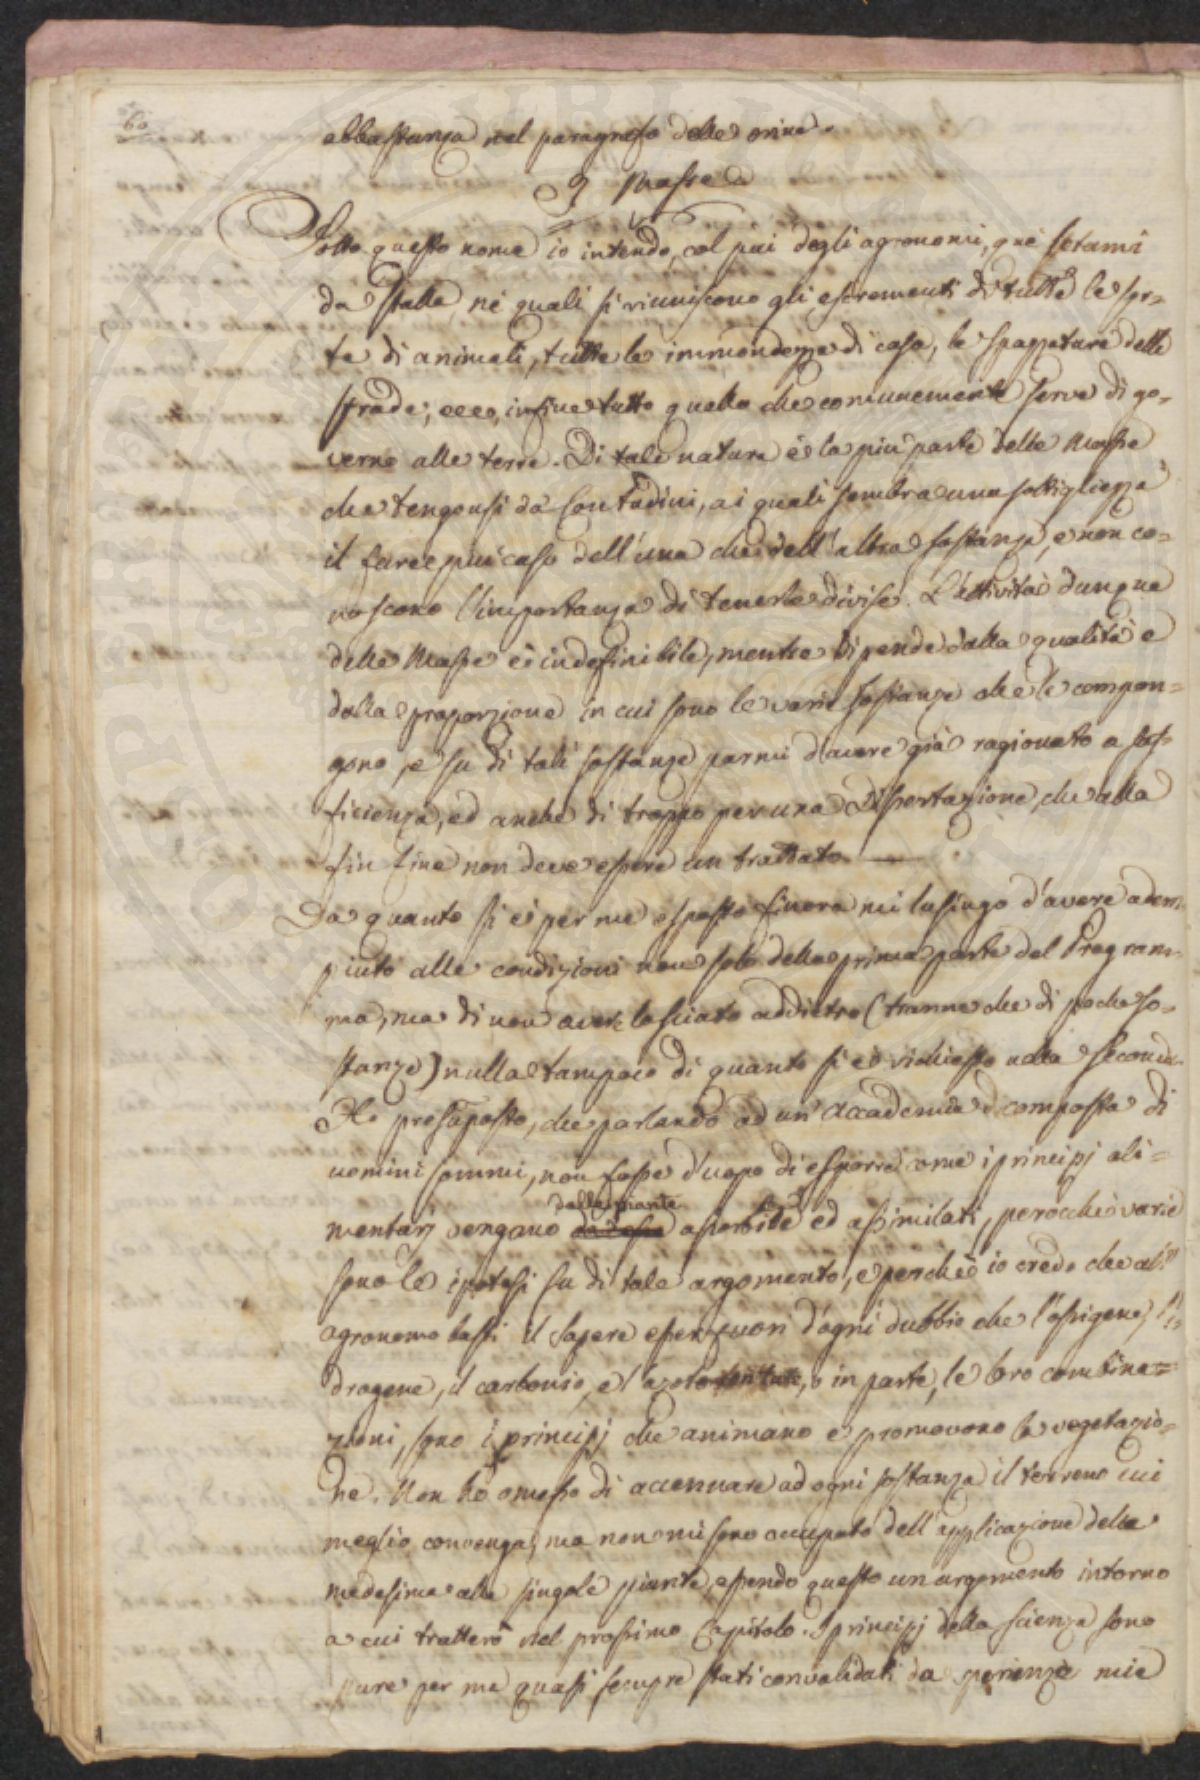 60
abbastanza nel paragrafo delle orine.
9 Masse
Sotto questo nome io intendo, col più degli agronomi, que' letami
da stalla, ne' quali si riuniscono gli escrementi di tutte le sor=
te di animali, tutte le immondezze di casa, le spazzature delle
strade, ecc., infine tutto quello che comunemente serve di go=
verno alle terre. Di tale natura è la più parte delle Masse
che tengonsi da' Contadini, ai quali sembra una sottigliezza
il fare più caso dell'una che dell'altra sostanza, e non co=
noscono l'importanza di tenerle divise. L'attività dunque
delle Masse è indefinibile, mentre dipende dalla qualità e
dalla proporzione in cui sono le varie sostanze che le compon=
gono, e su di tali sostanze parmi d'avere già ragionato a suf=
ficienza, ed anche di troppo per una Dissertazione, che alla
fin fine non deve essere un trattato.
Da quanto si è per me esposto finora mi lusingo d'avere adem=
piuto alle condizioni non solo della prima parte del Program=
ma, ma di non avere lasciato addietro (tranne che di poche so=
stanze) nulla tampoco di quanto si è richiesto nella seconda.
Ho presupposto, che parlando ad un' Accademia composta di
uomini sommi, non fosse d'uopo di esporre come i principj ali=
dalle piante
mentarj vengano assorbiti ed assimilati, perocchè varie
sono le ipotesi su di tale argomento, e perchè io credo che all'
agronomo basti il sapere esser fuori d'ogni dubbio che l'ossigene, l'i=
drogene, il carbonio, e l'azoto, o in parte, le loro combina=
zioni, sono i principj che animano e promovono la vegetazio=
ne. Non ho omesso di accennare ad ogni sostanza il terreno cui
meglio convenga, ma non mi sono occupato dell'applicazione delle
medesime alle singole piante, essendo questo un argomento intorno
a cui tratterò nel prossimo Capitolo. I principj della scienza sono
pure per me quasi sempre stati convalidati da sperienze mie